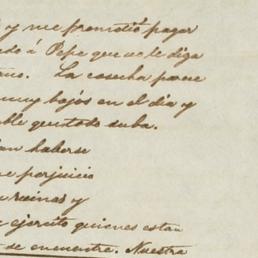 y me prometió pagar
á Pepe que se le diga
La cosecha parece
muy bajos en el dia y
que todo suba.
haberse
perjuicio
ruinas y
ejercito quienes estan
se encuentre. Nuestra